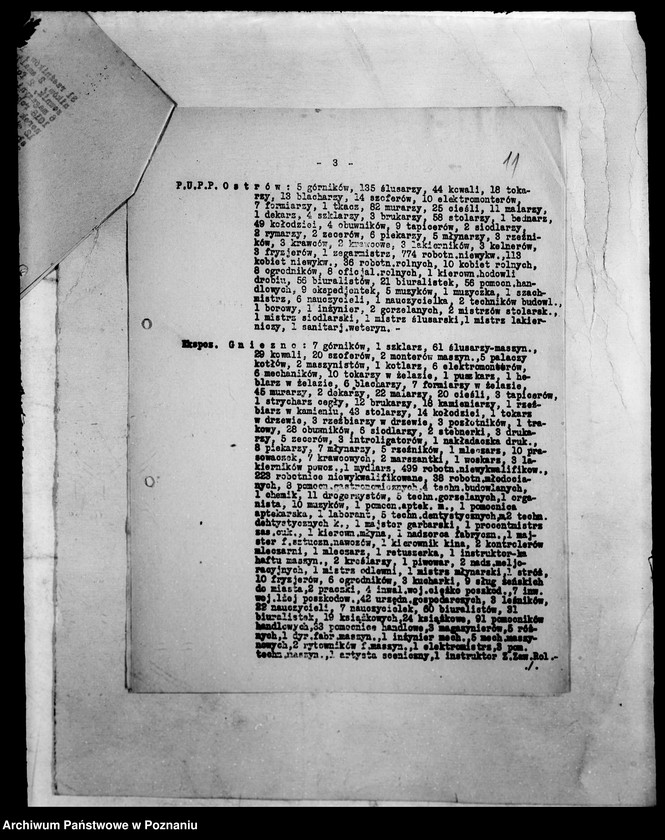 - 3 -
11
P.U.P.P. O s t r ó w : 5 górników, 135 ślusarzy, 44 kowali, 18 toka-
rzy, 13 blacharzy, 14 szoferów, 10 elektromonterów,
7 formiarzy, 1 tkacz, 82 murarzy, 25 cieśli, 11 malarzy,
1 dekarz, 4 szklarzy, 3 brukarzy, 58 stolarzy, 1 bednarz,
49 kołodziei, 4 obuwników, 9 tapicerów, 2 siodlarzy,
2 rymarzy, 2 zecerów, 6 piekarzy, 5 młynarzy, 3 rzeźni-
ków, 3 krawców, 2 krawcowe, 3 lakierników, 3 kelnerów,
3 fryzjerów, 1 zegarmistrz, 774 robotn.niewykw.,113
kobiet niewykw., 36 robotn.rolnych, 10 kobiet rolnych,
8 ogrodników, 8 oficjal.rolnych, 1 kierown.hodowli
drobiu, 56 biuralistów, 21 biuralistek, 56 pomocn.han-
dlowych, 9 ekspedjentek, 5 muzyków, 1 muzyczka, 1 szach-
mistrz, 6 nauczycieli, 1 nauczycielka, 2 techników budowl.,
1 borowy, 1 inżynier, 2 gorzelanych, 2 mistrzów stolarsk.,
1 mistrz siodlarski, 1 mistrz ślusarski,1 mistrz lakier-
niczy, 1 sanitarj.weteryn. -
Ekspoz. G n i e z n o : 7 górników, 1 szklarz, 61 ślusarzy-maszyn.,
29 kowali, 20 szoferów, 2 monterów maszyn.,5 palaczy
kotłów, 2 maszynistów, 1 kotlarz, 6 elektromonterów,
6 mechaników, 10 tokarzy w żelazie, 1 puszkarz, 1 he-
blarz w żelazie, 6 blacharzy, 7 formiarzy w żelazie,
45 murarzy, 2 dekarzy, 22 malarzy, 20 cieśli, 3 tapicerów,
1 strycharz cegły, 12 brukarzy, 18 kamieniarzy, 1 rzeź-
biarz w kamieniu, 43 stolarzy, 14 kołodziei, 1 tokarz
w drzewie, 3 rzeźbiarzy w drzewie, 3 pozłotników, 1 tra-
kowy, 28 obuwników, 6 siodlarzy, 2 stebnerki, 3 druka-
rzy, 5 zecerów, 3 introligatorów, 1 nakładaczka druk.,
8 piekarzy, 7 młynarzy, 5 rzeźników, 1 mleczarz, 10 pra-
sowaczek, 7 krawcowych, 2 marszantki, 1 woskarz, 3 la-
kierników powoz.,1 mydlarz, 499 robotn.niewykwalifikow.,
223 robotnice niewykwalifikowane, 38 robotn.młodocia-
nych, 8 pomocn.gastronomicznych,4 techn.budowlanych,
1 chemik, 11 drogerzystów, 5 techn.gorzelanych,1 orga-
nista, 10 muzyków, 1 pomocn.aptek. m., 1 pomocnica
aptekarska, 1 laborant, 5 techn.dentystycznych,2 techn.
dentystycznych k., 1 majster garbarski, 1 procentmistrz
zas.cuk., 1 kierown.młyna, 1 nadzorca fabryczn.,1 maj-
ster f.sztuczn.nawozów, 1 kierownik kina, 2 kontrolerów
mleczarni, 1 mleczarz, 1 retuszerka, 1 instruktor-ka
haftu maszyn., 2 kreślarzy, 1 piwowar, 2 nadz.meljo-
racyjnych, 1 mistrz odlewni, 1 mistrz młynarski,1 stróż,
10 fryzjerów, 6 ogrodników, 3 kucharki, 9 sług żeńskich
do miasta,2 praczki, 4 inwal.woj.ciężko poszkod.,7 inw.
woj.lżej poszkodow.,42 urzędn.gospodarczych, 3 leśników,
22 nauczycieli, 7 nauczycielek, 60 biuralistów, 31
biuralistek, 19 książkowych,24 książkowe, 91 pomocników
handlowych,33 pomocnice handlowe,3 magazynierów,5 róż-
nych,1 dyr.fabr.maszyn.,1 inżynier mech.,5 mech.maszy-
nowych,2 rytowników f.maszyn.,1 elektromistrz,3 pom.
techn.maszyn.,1 artysta sceniczny,1 instruktor Z.Zaw.Rol.-
./.
Archiwum Państwowe w Poznaniu